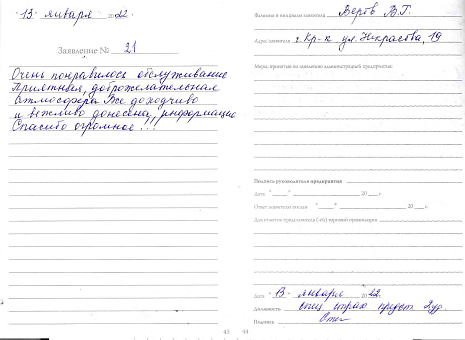 "13" января 2022.
Заявление № 21
Очень понравилось обслуживание
Приятная, доброжелательная
атмосфера. Все доходчиво
и вежливо донесена, информация
Спасибо огромное!!!
43
Фамилия и инициалы заявителя Вертв В.Г.
Адрес заявителя г. Кр-к ул. Некрасова, 19
Меры, принятые по заявлению администрацией предприятия:
Подпись руководителя предприятия
Дата "___" ______ 20 __ г.
Ответ заявителю послан "___" ______ 20 __ г.
Для отметок представителя (-ей) торговой организации
Дата "13" января 2022.
Должность спец
Подпись
44